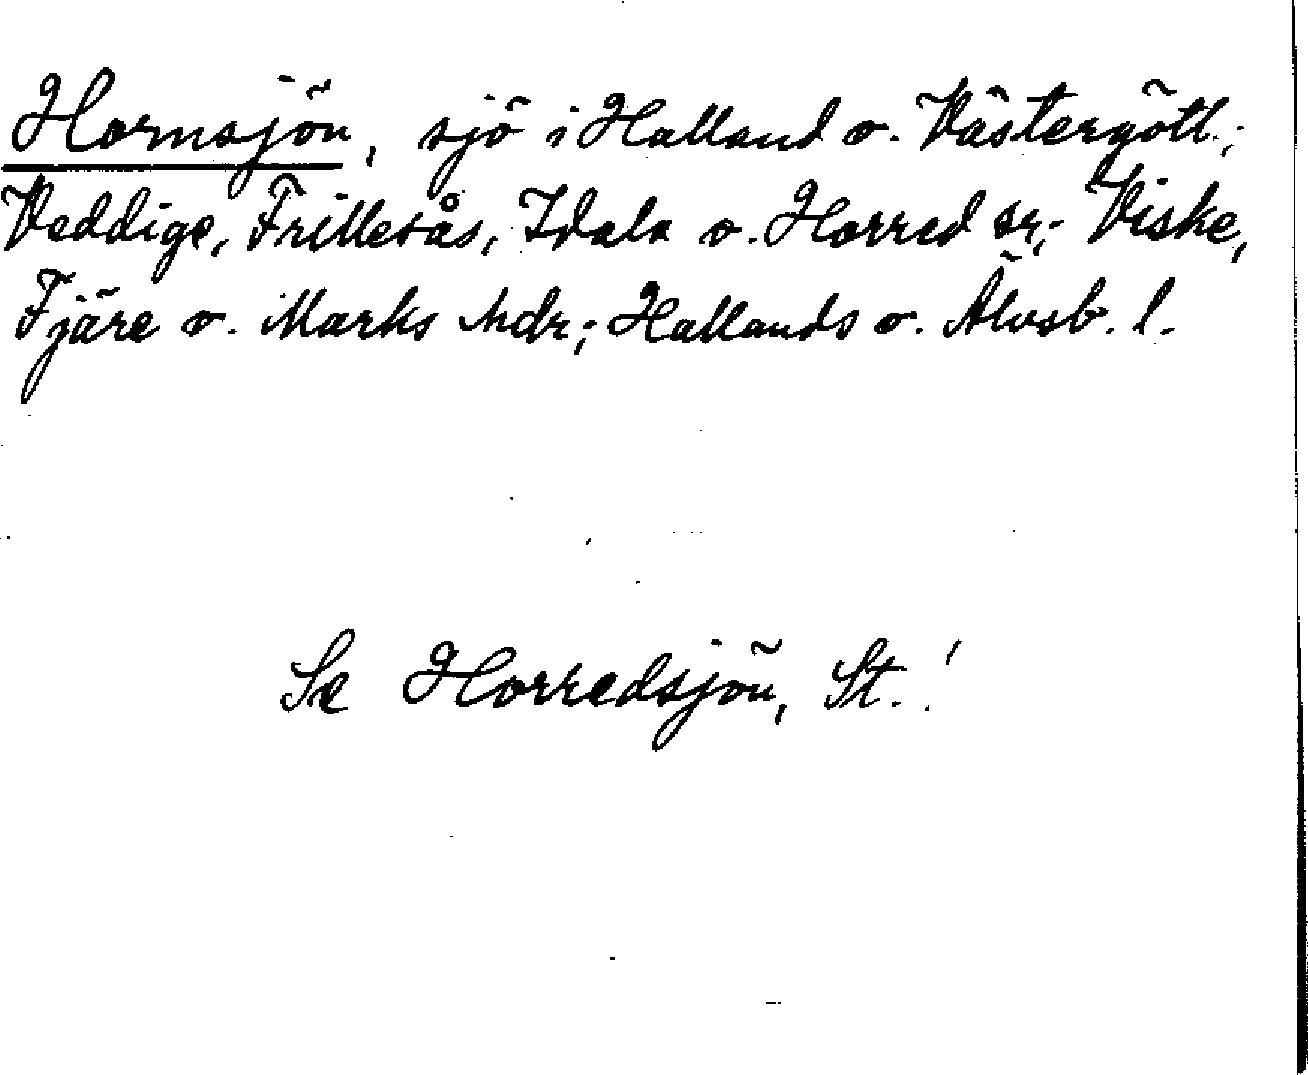 Hornsjön, sjö i Halland o. Västergötl.;
Veddige, Frillesås, Idala o. Horred sr; Viske,
Fjäre o. Marks hdr; Hallands o. Älvsb. l.
Se Horredsjön, St.!